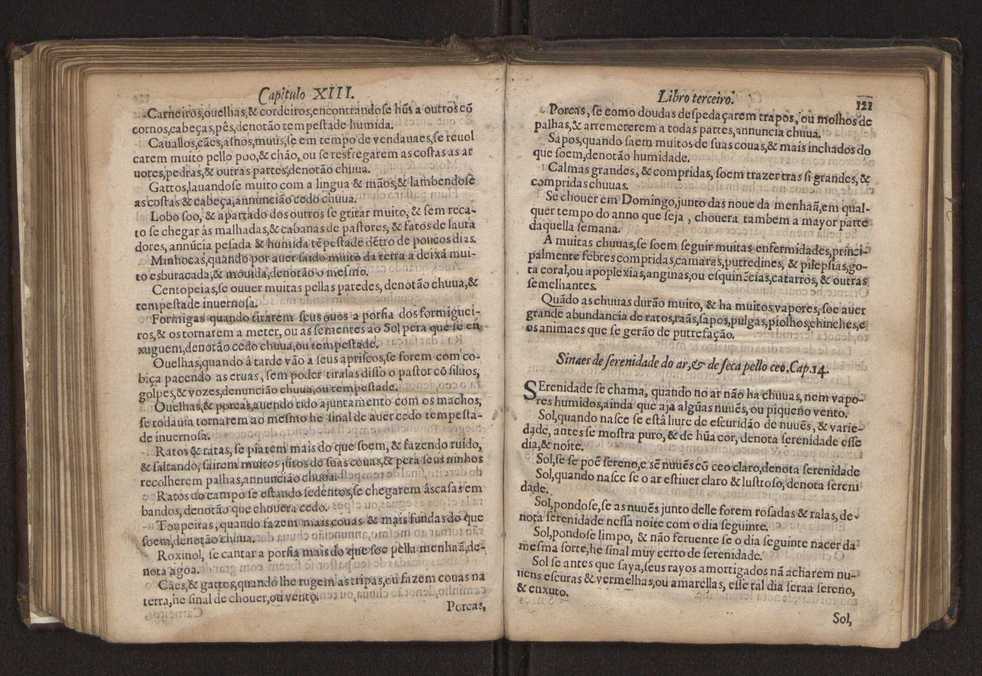 Capitulo XIII.
Carneiros,ouelhas,& cordeiros,encontrandose hũs a outros cõ
cornos,cabeças,pès,denotão tempestade humida.
Cauallos,cães,asnos,muûs,se em tempo de vendauaes,se reuol
carem muito pello poo,& chão, ou se resfregarem as costas as ar
uores,pedras,& outras partes,denotão chuua.
Gattos,lauandose muito com a lingua & mãos,& lambendose
as costas & cabeça,annuncião cedo chuua.
Lobo soo, & apartado dos outros se gritar muito, & sem reca-
to se chegar às malhadas,& cabanas de pastores, & fatos de laura
dores, annũcia pesada & humida tẽpestade dẽtro de poucos dias.
Minhocas,quando por auer saido muito da terra a deixã mui-
to esburacada,& mouida,denotão o mesmo.
Centopeias,se ouuer muitas pellas paredes, denotão chuua,&
tempestade inuernosa.
Formigas quando tirarem seus ouos a porfia dos formiguei-
ros,& os tornarem a meter, ou as sementes ao Sol pera que se en
xuguem,denotão cedo chuua,ou tempestade.
Ouelhas,quando à tarde vão a seus apriscos,se forem com co-
biça pacendo as eruas, sem poder tiralas disso o pastor cõ siluos,
golpes,& vozes,denuncião chuua,ou tempestade.
Ouelhas,& porcas,auendo tido ajuntamento com os machos,
se todauia tornarem ao mesmo he sinal de auer cedo tempesta-
de inuernosa.
Ratos & ratas, se piarem mais do que soem,& fazendo ruido,
& saltando, sairem muitos jũtos de suas couas,& pera seus ninhos
recolherem palhas,annuncião chuua.
Ratos do campo se estando sedentos,se chegarem às casas em
bandos, denotão que chouera cedo.
Toupeiras, quando fazem mais couas & mais fundas do que
soem,denotão chuua.
Roxinol, se cantar a porfia mais do que soe pella menhaã,de-
nota agoa.
Cães,& gattos,quando lhe rugem as tripas,ou fazem couas na
terra,he sinal de chouer,ou vento.
Porcas,
Libro terceiro.
121
Porcas, se como doudas despedaçarem trapos, ou molhos de
palhas,& arremeterem a todas partes,annuncia chuua.
Sapos,quando saem muitos de suas couas,& mais inchados do
que soem,denotão humidade.
Calmas grandes, & compridas, soem trazer tras si grandes,&
compridas chuuas.
Se chouer em Domingo,junto das noue da menhaã,em qual-
quer tempo do anno que seja, chouera tambem a mayor parte
daquella semana.
A muitas chuuas,se soem seguir muitas enfermidades,princi-
palmente febres compridas,camaras,putredines, & pilepsias,go-
ta coral,ou apoplexias,anginas,ou esquinẽcias,catarros, & outras
semelhantes.
Quãdo as chuuas durão muito, & ha muitos vapores, soe auer
grande abundancia de ratos,raãs,sapos,pulgas,piolhos,chinches,e
os animaes que se gerão de putrefação.
Sinaes de serenidade do ar,& de seca pello ceo.Cap.14.
SErenidade se chama, quando no ar não ha chuuas, nem vapo-
res humidos,ainda que aja algũas nuuẽs, ou piqueno vento.
Sol,quando nasce se està liure de escuridão de nuuẽs, & varie-
dade, antes se mostra puro,& de hũa cor, denota serenidade esse
dia,& noite.
Sol,se se poẽ sereno,e sẽ nuuẽs cõ ceo claro,denota serenidade
Sol,quando nasce se o ar estiuer claro & lustroso, denota sereni
dade.
Sol, pondose,se as nuuẽs junto delle forem rosadas & ralas, de-
nota serenidade nessa noite com o dia seguinte.
Sol,pondose limpo, & não feruente se o dia seguinte nacer da
mesma sorte,he sinal muy certo de serenidade.
Sol se antes que saya,seus rayos amortigados nã acharem nu-
uens escuras & vermelhas,ou amarellas, esse tal dia seraa sereno,
& enxuto.
Sol,